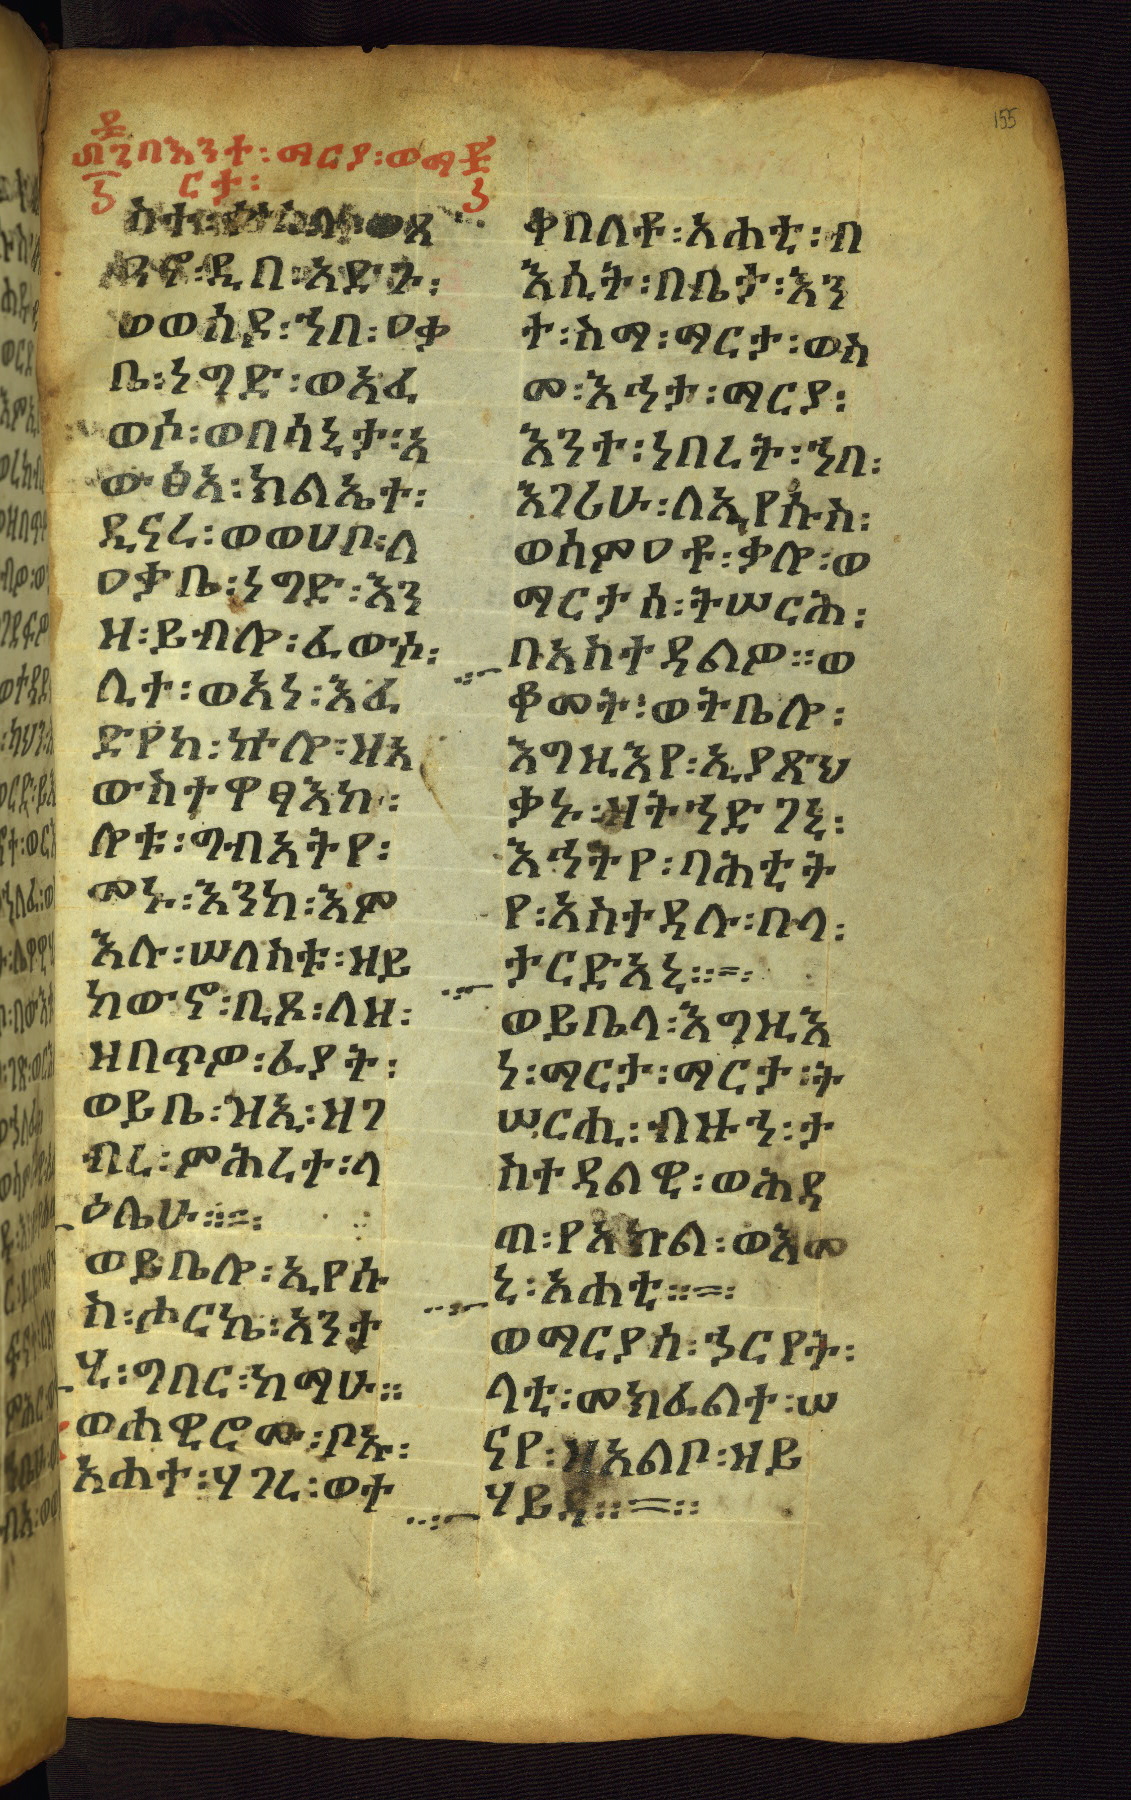 155
በእንተ፡ማርያ፡ወማ
ርታ፡
ዲበ፡አድጉ፡
ወወሰዶ፡ኀበ፡ዐቃ
ቤ፡ነግድ፡ወአፈ
ወሶ፡ወበሳኒታ፡አ
ውፅአ፡ክልኤተ፡
ዲናረ፡ወወሀቦ፡ለ
ዐቃቤ፡ነግድ፡እን
ዘ፡ይብሎ፡ፈውሶ፡
ሊተ፡ወእነ፡እፈ
ድየከ፡ኵሎ፡ዘአ
ውስተዋፃእከ፡
ሎቱ፡ግብአትየ፡
መኑ፡እንከ፡እም
እሉ፡ሠለስቱ፡ዘይ
ከውኖ፡ቢጾ፡ለዘ፡
ዘበጥዎ፡ፈያት፡
ወይቤ፡ዝኢ፡ዘገ
ብረ፡ምሕረተ፡ላ
ዕሌሁ።=፡
ወይቤሎ፡ኢየሱ
ስ፡ሖርኬ፡አንተ
ሂ፡ግበር፡ከማሁ።
ወሐዊሮሙ፡ቦኡ፡
አሐተ፡ሃገረ፡ወተ
ቀበለቶ፡አሐቲ፡ብ
እሲት፡በቤታ፡እን
ተ፡ስማ፡ማርታ፡ወስ
መ፡እኅታ፡ማርያ፡
እንተ፡ነበረት፡ኀበ፡
እገሪሁ፡ለኢየሱስ፡
ወሰምዐቶ፡ቃሎ፡ወ
ማርታሰ፡ትሠርሕ፡
በአስተዳልዎ።ወ
ቆመት፡ወትቤሎ፡
እግዚእየ፡ኢያጽህ
ቃኑ፡ዘትኀድገኒ፡
እኅትየ፡ባሕቲት
የ፡አስተዳሉ፡በላ፡
ታርድአኒ።=፡
ወይቤላ፡እግዚእ
ነ፡ማርታ፡ማርታ፡ት
ሠርሒ፡ብዙኀ፡ታ
ስተዳልዊ፡ወሕዳ
ጠ፡የአክል፡ወእመ
ኒ፡አሐቲ።=፡
ወማርያሰ፡ኀርየት፡
ላቲ፡መክፈልተ፡ሠ
ናየ፡ዘአልቦ፡ዘይ
ሃይዳ።=።